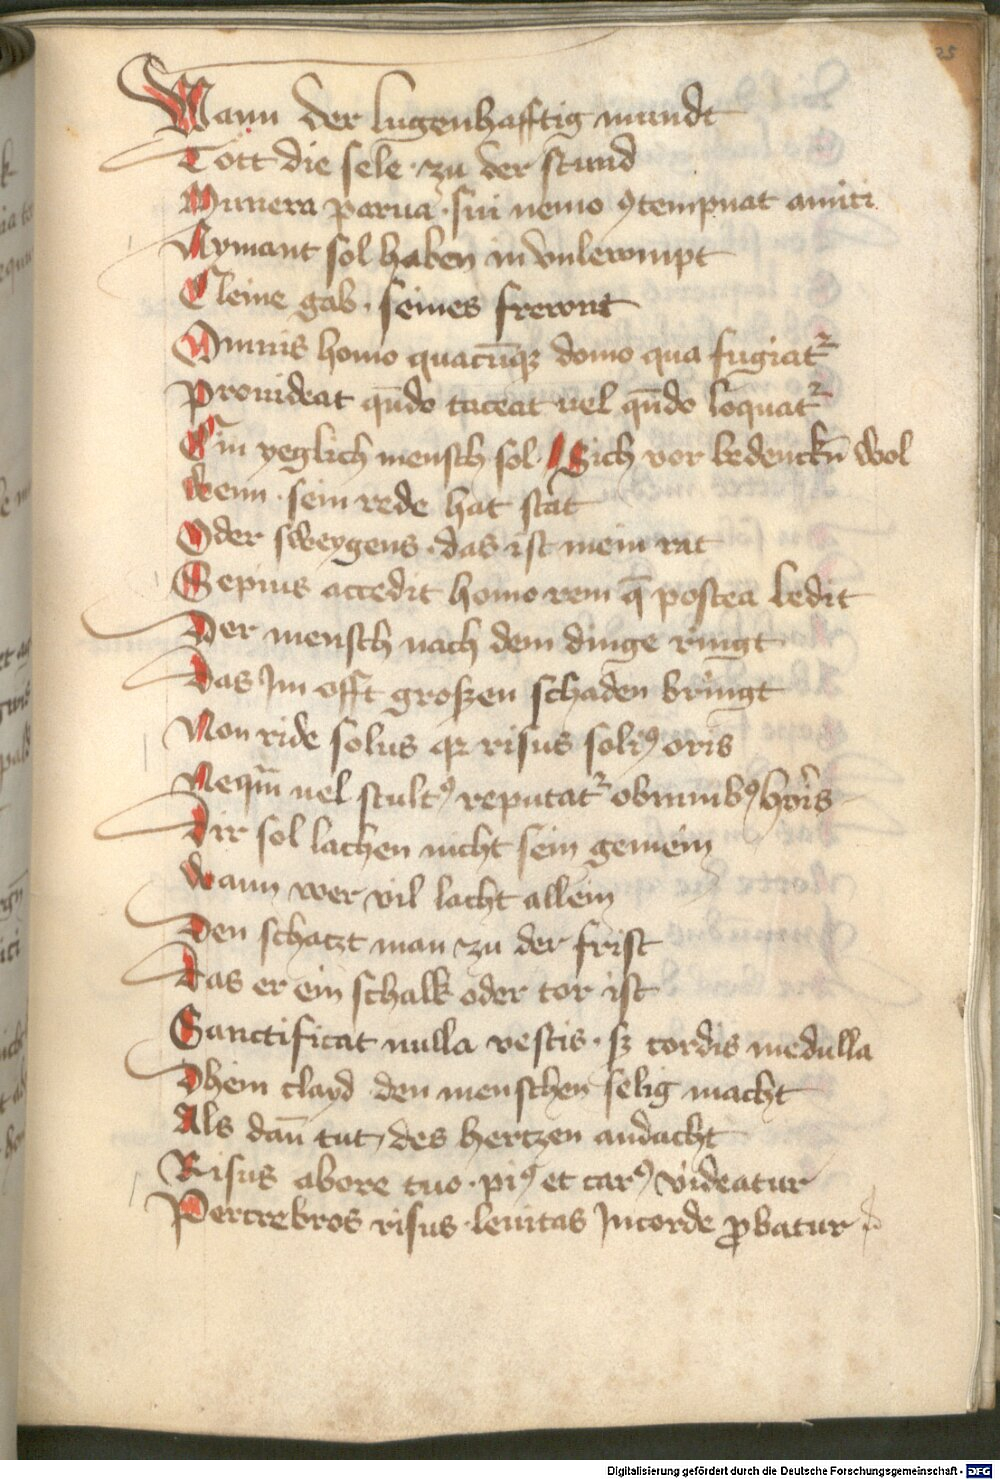 25
Wann der lugenhafftig mundt
Tott die sele · zu der stund
Munera parua · sui nemo ꝯtempnat amici
Nymant sol haben in vnlerompt
Cleine gab · seines frewnt
Omnis homo quacūqꝫ domo qua fugiat᷑
Prouideat qn̄do taceat uel qn̄do loquat᷑
Ein yeglich mensch sol · Sich vor bedenckn̄ wol
Wenn · sein rede hat stat
Oder sweygens · das ist mein rat
Sepius accedit homo rem q̄ postea ledit
Der mensch nach dem dinge ringt
Das Im offt großen schaden bringt
Non ride solus qꝛ risus soliꝰ oris
Neqm̄ uel stultꝰ reputat᷑ obmnibꝰ horis
Dir sol lachen nicht sein gemein
Wann wer vil lacht allein
Den schatzt man zu der frist
Das er ein schalk oder tor ist
Sanctificat nulla vestis · sꝫ cordis medulla
Dhein clayd den menschen selig macht
Als dan̄ tut des hertzen andacht
Risus abore tuo · piꝰ et carꝰ videatur
Percrebros risus · leuitas Incorde ꝓbatur
Digitalisierung gefördert durch die Deutsche Forschungsgemeinschaft - DFG